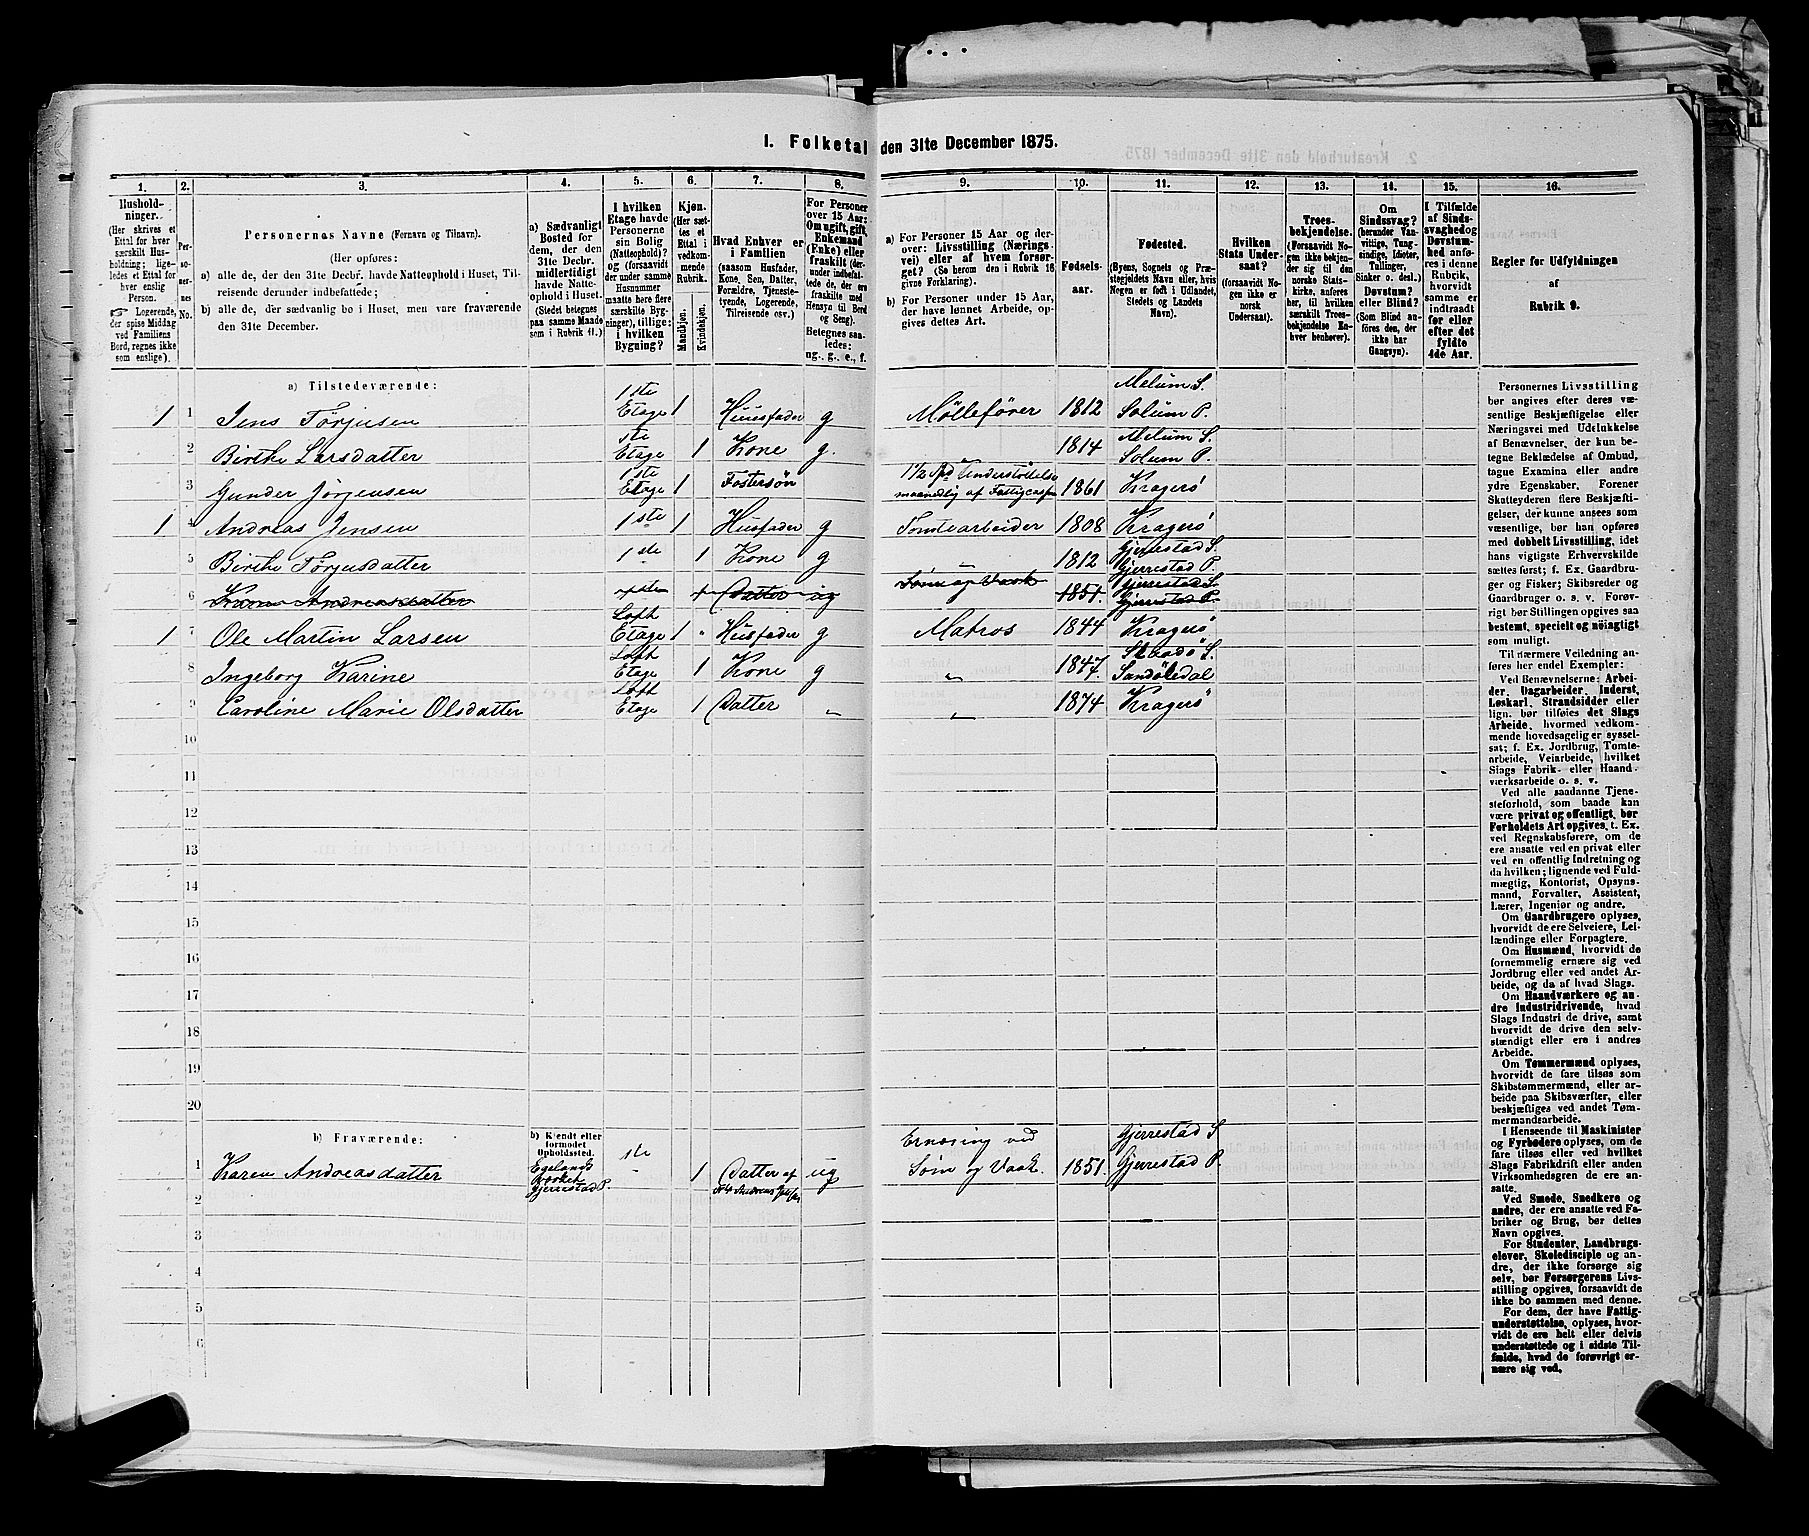 1. Folketal den 31te December 1875.
1. 2. 3. 4. 5. 6. 7. 8. 9. 10. 11. 12. 13. 14. 15. 16.
Husholdninger. (Her skrives et Ettal for hver særskilt Husholdning; ligeledes et Ettal for hver enslig Person. Logerende, der spise Middag ved Familiens Bord, regnes ikke som enslige.)
Personernes No.
Personernes Navne (Fornavn og Tilnavn).
(Her opføres:
a) alle de, der den 31te Decbr. havde Natteophold i Huset, Tilreisende derunder indbefattede;
b) alle de, der sædvanlig bo i Huset, men vare fraværende den 31te December.
a) Sædvanligt Bosted for dem, der den 31te Decbr. midlertidigt havde Natteophold i Huset. (Stedet betegnes paa samme Maade som i Rubrik 11.)
I hvilken Etage havde Personerne sin Bolig (Natteophold)? og (forsaavidt der under samme Husnummer maatte høre flere særskilte Bygninger), tillige: i hvilken Bygning?
Kjøn. (Her sættes et Ettal i vedkommende Rubrik.
Mandkjøn. Kvindekjøn.
Hvad Enhver er i Familien (saasom Husfader, Kone, Søn, Datter, Forældre, Tjenestetyende, Logerende, Tilreisende osv.)
For Personer over 15 Aar: Om ugift, gift, Enkemand (Enke) eller fraskilt (derunder indbefattede de, der ere fraskilte med Hensyn til Bord og Seng). Betegnes saaledes: ug., g., e., f.
a) For Personer 15 Aar og derover: Livsstilling (Næringsvei) eller af hvem forsørget? (Se herom den i Rubrik 16 givne Forklaring).
b) For Personer under 15 Aar, der have lønnet Arbeide, opgives dettes Art.
Fødselsaar.
Fødested. (Byens, Sognets og Præstegjeldets Navn eller, hvis Nogen er født i Udlandet, Stedets og Landets Navn).
Hvilken Stats Undersaat? (forsaavidt Nogen ikke er norsk Undersaat).
Troesbekjendelse. (Forsaavidt Nogen ikke bekjender sig til den norske Statskirke, anføres her, til hvilken særskilt Troesbekjendelse Enhver henhører).
Om Sindssvag? (herunder Vanvittige, Tungsindige, Idioter, Tallinger, Sinker o. desl.) Døvstum? eller Blind? (Som Blind anføres den, der ikke har Gangsyn).
I Tilfælde af Sindssvaghed og Døvstumhed anføres i denne Rubrik, hvorvidt samme er indtraadt før eller efter det fyldte 4de Aar.
Regler for Udfyldningen af Rubrik 9.
a) Tilstedeværende:
1 1 Jens Tørjusen 1ste Etage 1 Huusfader g Møllefører 1812 Melum S. Solum P.
2 Birthe Larsdatter 1ste Etage 1 Kone g. 1814 Melum S. Solum P.
3 Gunder Jørgensen 1ste Etage 1 Fostersøn 1 1/2 Spd Understøttelse maanedlig af Fattigcassen 1861 Kragerø
1 4 Andreas Jensen 1ste 1 Husfader g Tomtearbeider 1808 Kragerø
5 Birthe Tørjusdatter 1ste 1 Kone g 1812 Gjerrestad S. Gjerrestad P.
6 Karen Andreasdatter 1ste 1 Datter ug Søm og Vask 1851. Gjerrestad S. Gjerrestad P.
1 7 Ole Martin Larsen Loft Etage 1 " Husfader g Matros 1844 Kragerø
8 Ingeborg Karine Loft Etage 1 Kone g " 1847. Skaadø S. Sandøkedal
9 Caroline Marie Olsdatter Loft Etage 1 Datter " " 1874 Kragerø
10
11
12
13
14
15
16
17
18
19
20
b) Fraværende:
b) Kjendt eller formodet Opholdssted.
1 Karen Andreasdatter Egelands Værket Gjerrestad P. ste 1 Datter af No 4 Andreas Jensen ug Ernæring ved Søm og Vask. 1851. Gjerrestad S Gjerrestad P.
2
3
4
5
6
Personernes Livsstilling
ber angives efter deres væ-
sentlige Beskjæftigelse eller
Næringsvei med Udelukkelse
af Benævnelser, der kun be-
tegne Beklædelse af Ombud,
tagne Examina eller andre
ydre Egenskaber. Forener
Skatteyderen flere Beskjæfti-
gelser, der kunne ansees som
væsentlige, bør han opføres
med dobbelt Livsstilling, idet
hans vigtigste Erhvervskilde
sættes først; f. Ex. Gaardbru-
ger og Fisker; Skibsreder og
Gaardbruger o. s. v. Forøv-
rigt bør Stillingen opgives saa
bestemt, specielt og nøiagtigt
som muligt.
Til nærmere Veiledning an-
føres her endel Exempler:
Ved Benævnelserne: Arbei-
der, Dagarbeider, Inderst,
Løskarl, Strandsidder eller
lign. bør tilføies det Slags
Arbeide, hvormed vedkom-
mende hovedsagelig er syssel-
sat; f. Ex. Jordbrug, Tomte-
arbeide, Veiarbeide, hvilket
Slags Fabrik- eller Haand-
værksarbeide o. s. v.
Ved alle saadanne Tjene-
steforhold, som baade kan
være privat og offentligt, bør
Forholdets Art opgives, t. Ex.
ved Regnskabsførere, om de
ere ansatte ved en privat eller
ved en offentlig Indretning og
da hvilken; lignende ved Fuld-
mægtig, Kontorist, Opsyns-
mand, Forvalter, Assistent,
Lærer, Ingeniør og andre.
Om Gaardbrugere oplyses,
hvorvidt de ere Selveiere, Lei-
lændinge eller Forpagtere.
Om Husmænd, hvorvidt de
fornemmelig ernære sig ved
Jordbrug eller ved andet Ar-
beide, og da af hvad Slags.
Om Haandværkere og an-
dre industridrivende, hvad
Slags Industri de drive, samt
hvorvidt de drive den selv-
stændigt eller ere i andres
Arbeide.
Om Tømmermænd oplyses,
hvorvidt de fare tilsøs som
Skibstømmermænd, eller ar-
beide paa Skibsværfter, eller
beskjæftiges ved andet Tøm-
mermandsarbeide.
I Henseende til Maskinister
og Fyrbødere oplyses, om de
fare tilsøs eller ved hvilket
Slags Fabrikdrift eller anden
Virksomhedsgren de ere an-
satte.
Ved Smede, Snedkere og
andre, der ere ansatte ved Fa-
briker og Brug, bør dettes
Navn opgives.
For Studenter, Landbrugs-
elever, Skoledisciple og an-
dre, der ikke forsørge sig
selv, bør Forsørgerens Livs-
stilling opgives, forsaavidt de
ikke bo sammen med denne.
For dem, der have Fattig-
understøttelse, oplyses, hvor-
vidt de ere helt eller delvis
understøttede og i sidste Til-
fælde, hvad de forøvrigt er-
nære sig ved.